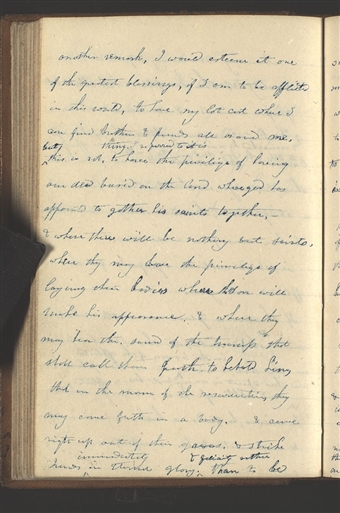 another remark, I would esteem it one
of the greatest blessings, if I am to be afflicted
in this world, to have my lot cast where I
can find brothers & friends all around me.
but thing I referred to it is
this is not, to have the privilege of having
our dead buried on the land where god has
appointed to gather his saints together,
& where there will be nothing but saints,
where they may have the privilege of
laying their bodies where the Son will
make his appearance. & where they
may hear the sound of the trump that
shall call them forth to behold him,
that in the morn of the resurrection, they
may come forth in a body. & come
right up out of their graves. & strike
immediately & felicity rather
hands in eternal glory. than to be